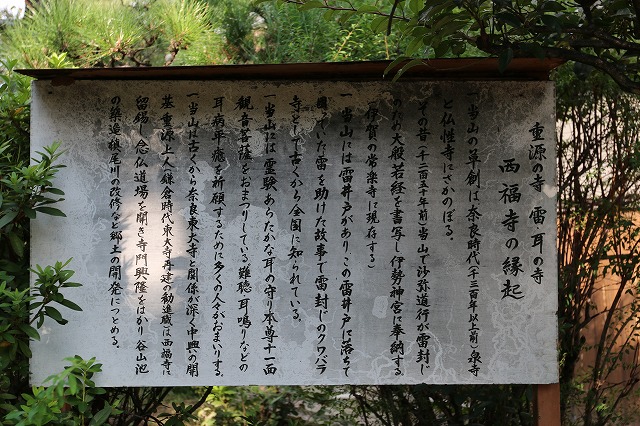 重源の寺 雷・耳の寺
西福寺の縁起
一当山の草創は奈良時代(千三百年以上前)泉寺
と仏性寺にさかのぼる。
一その昔(千二百五十年前)当山で沙弥道行が雷封じ
のため大般若経を書写し伊勢神宮に奉納する
(伊賀の常楽寺に現存する)
一当山には雷井戸があり、この雷井戸に落ちて
困っていた雷を助けた故事で雷封じのクワバラ
寺として古くから全国に知られている。
一当山には霊験あらたかな耳の守り本尊十一面
観音菩薩をおまつりしている。難聴、耳鳴りなどの
耳病平癒を祈願するために多くの人々がおまいりする。
一当山は古くから奈良東大寺と関係が深く中興の開
基重源上人(鎌倉時代東大寺再建の勧進職)は西福寺に
留錫し念仏道場を開き寺門興隆をはかり谷山池
の築造槙尾川の改修など郷土の開発につとめる。